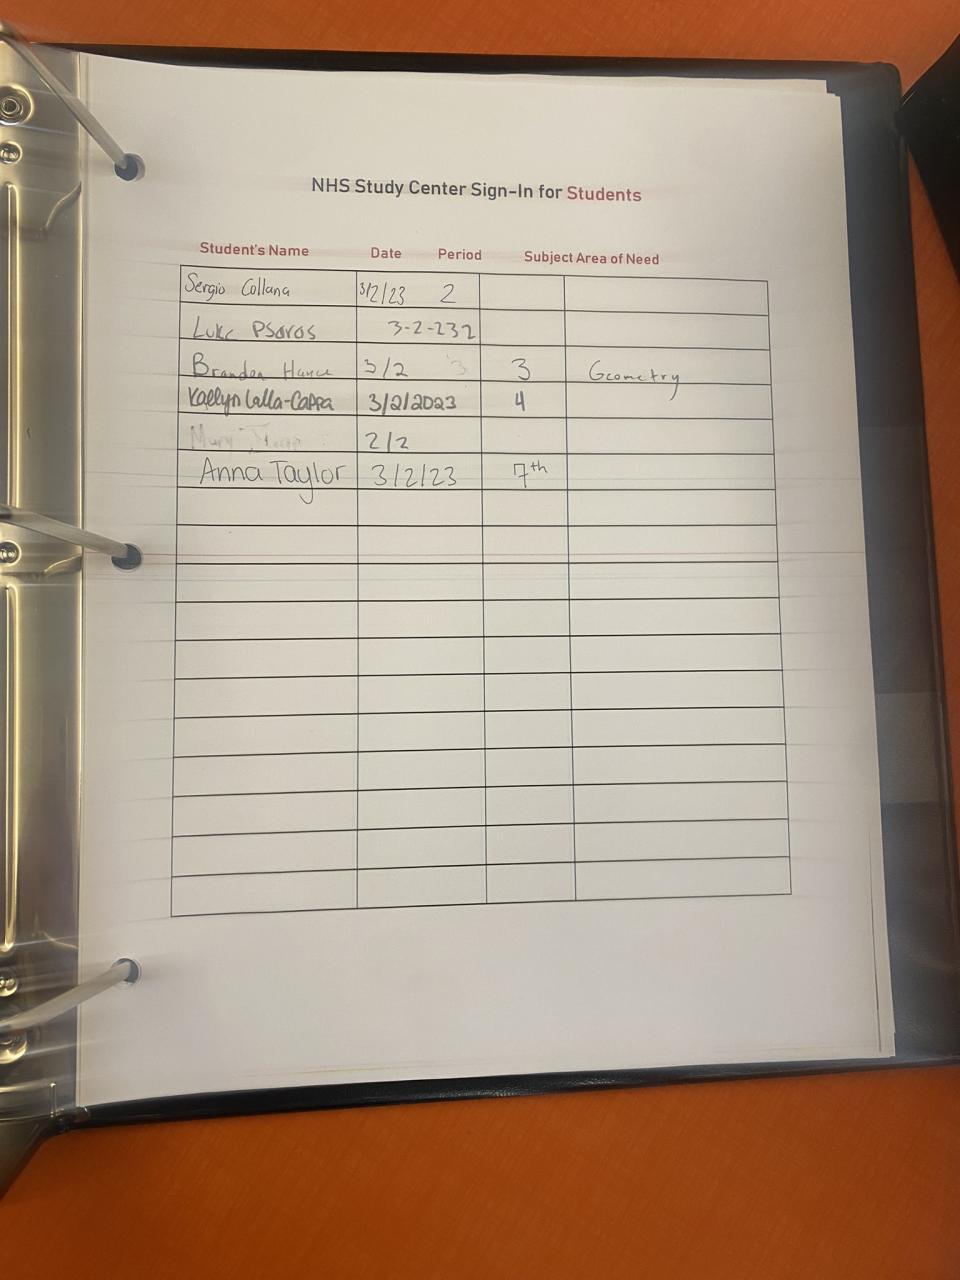 NHS Study Center Sign-In for Students
Student's Name Date Period Subject Area of Need
Sergio Collana 3/2/23 2
Luke Psaros 3-2-23 2
Branden 3/2 3 3 Geometry
Kaelyn Lalla-Cappa 3/2/2023 4
Mary 2/2
Anna Taylor 3/2/23 7th